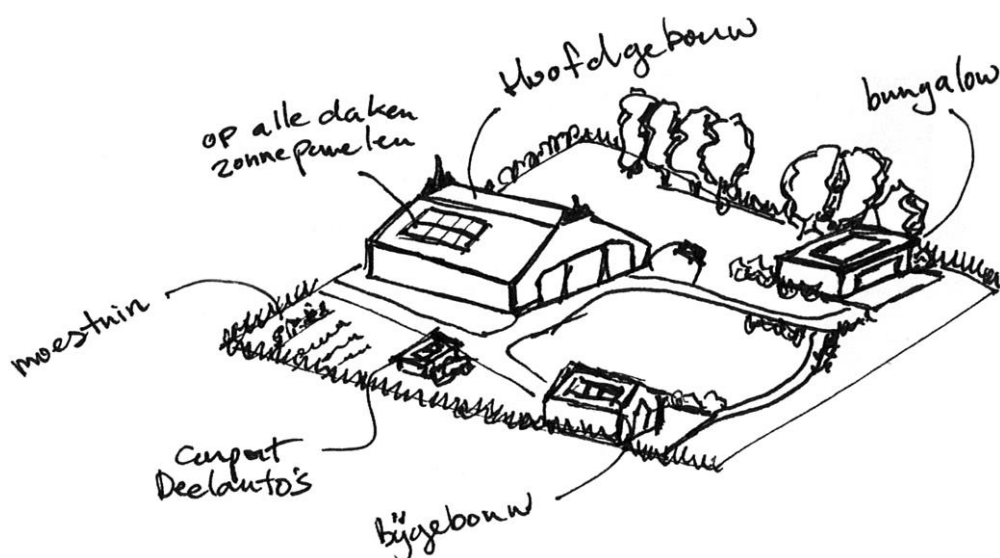 Hoofdgebouw
bungalow
op alle daken
zonnepanelen
moestuin
Carport
Deelauto's
Bijgebouw